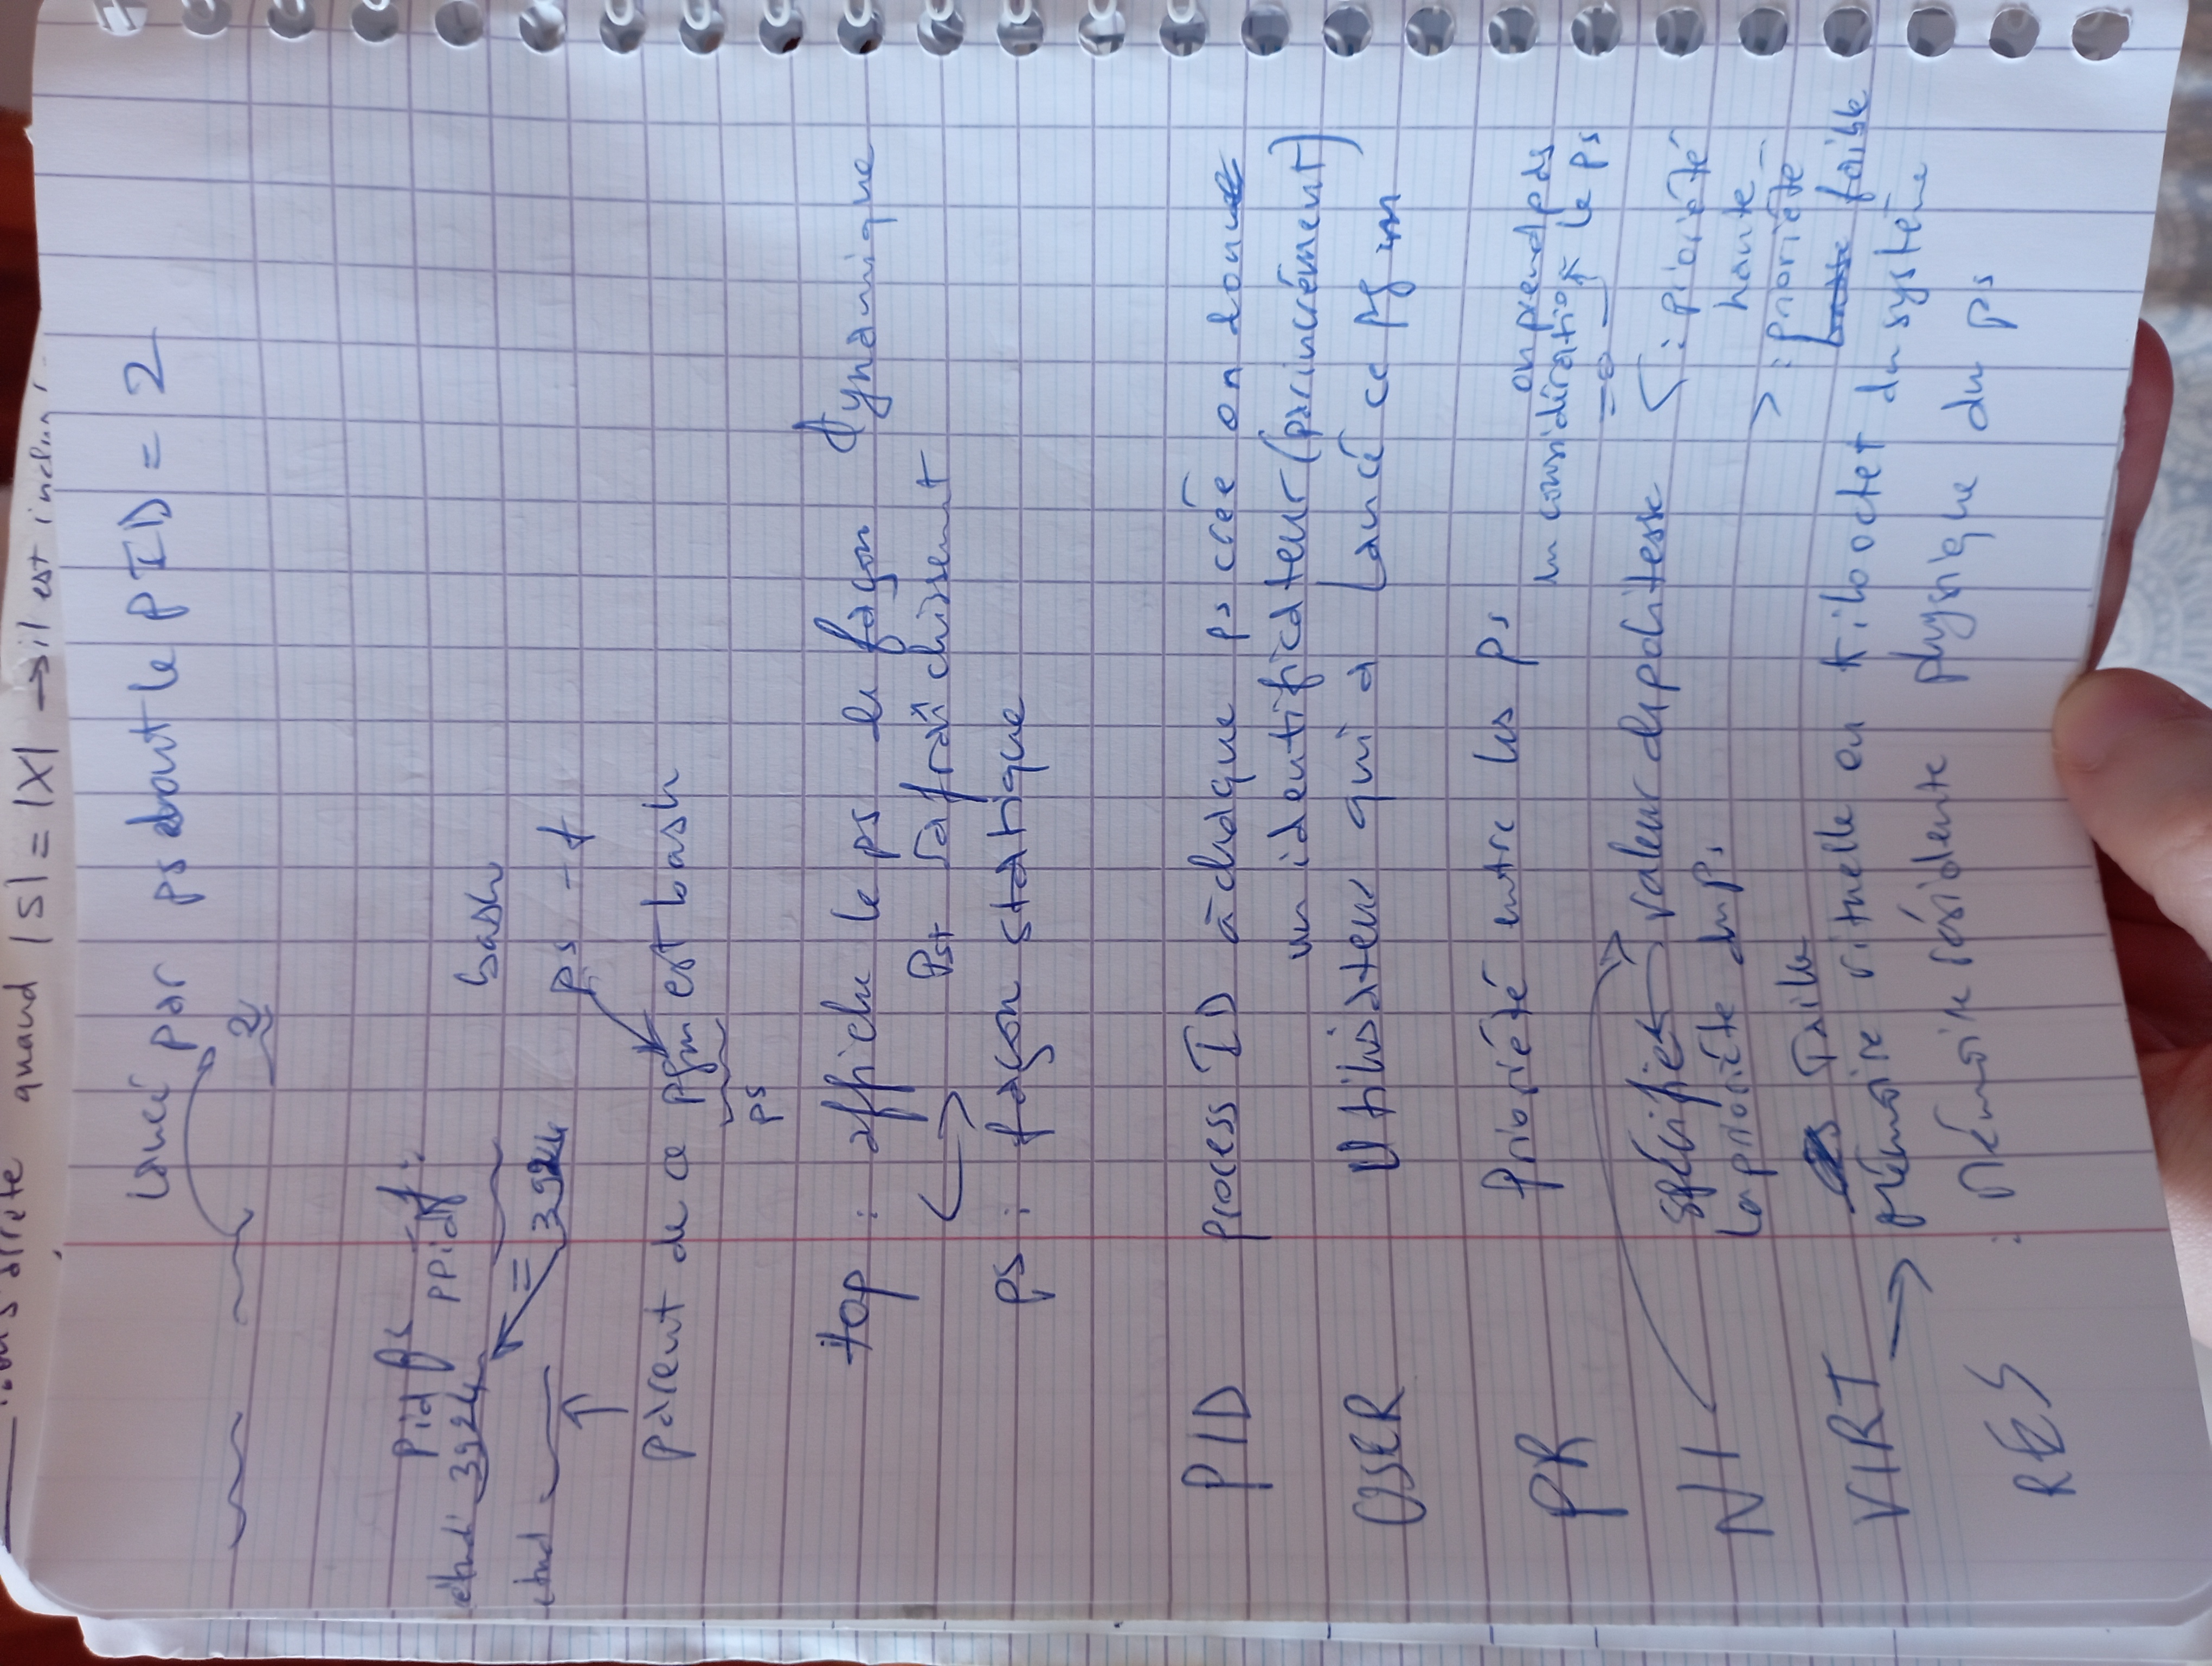 quand |S| = |X| → il est inclus
lancé par ps dont le PID = 2
2
ps -f :
Pid ppid
étud 3924 bash
étud = 3924 ps -f
parent de ce pgm est bash
ps
top : affiche le ps de façon dynamique
rafraîchissement
ps : façon statique
PID process ID à chaque ps créé on donne
un identificateur (par incrément)
USER Utilisateur qui a lancé ce pgm
PR Prioriété entre les ps
on prend pas
en considération le ps
= 0
NI spécifie valeur de politesse < : prioriété
la prioriété du ps haute
> : prioriété
basse faible
Taille
VIRT → Mémoire vituelle en Kilooctet du système
RES : Mémoire résidente physique du ps